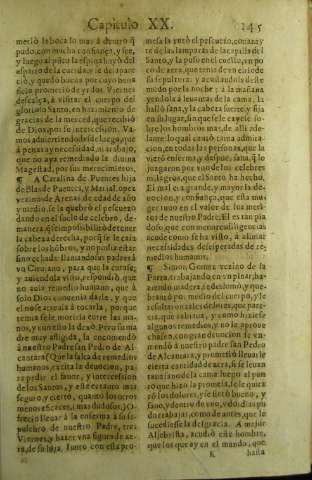 Capitulo XX. 145
merio la boca lo mas à dentro q
pudo, con mucha confiança, y fee,
y luego al pũto la espina hayò del
esparto de la cuerda, y se desapare-
ciò, y quedò bueno por cuyo bene-
ficio prometiò de yr dos Viernes
descalça, à visitar el cuerpo del
glorioso Santo, en hazimiento de
gracias de la merced, que recibiò
de Dios, por su intercession. Va-
mos advirtiendo los de luego, que
à penas ay necessidad, ni trabajo,
que no aya remediado la divina
Magestad, por sus merecimientos.
¶ A Catalina de Fuentes hija
de Blas de Fuentes, y Maria Lopez
vezinos de Arenas de edad de año
y medio, se la quebrò el pescueço
dando en el suelo de celebro, de-
manera, q̃ le impossibilitò detener
la cabeça derecha, porq̃ se le caìa
sobre los hõbros, y no podia estar
sino echada: llamando sus padres à
vn Cirujano, para que la curasse,
y auiendola visto, respondiò, que
no auia remedio humano, que à
solo Dios convenia darle, y que
el no se atreuia à tocarla, porque
temia se le moriria entre las ma-
nos, y con esto la dexò. Pero su ma-
dre muy afligida, la encomendò
à nuestro Padre san Pedro de Al-
cantara (Que la falta de remedios
humanos, excita la deuocion, pa-
ra pedir el fauor, y intercession
de los Santos, y es tan cierto mas
seguro y cierto, quanto los otros
menos eficaces, i mas dudosos.) O-
freciò llevar à la enferma à su se-
pulchro de nuestro Padre, tres
Viernes, y hazer vna figura de ce-
ra, de su hija. Iunto con esta pro-
mesa la vntò el pescueço, con azey-
te de las lamparas de la capilla del
Santo, y la puso en el cuello, vn po-
co de arena, que tenia de encima de
su sepultura; y acudandola deste
modo por la noche; à la mañana
yendola à leuantar de la cama, la
hallò sana, y la cabeça fuerte, y fixa
en su lugar, sin que se le cayesse so-
bre los hombros mas, de alli ade-
lante lo qual causò tanta admira-
cion, en todas las personas, que la
vieron enferma, y despues sana, q̃ lo
juzgaron por vno de los celebres
milagros, que el Señor ha hecho.
El mal era grande, y mayor la de-
uocion, i confiança, que esta mu-
ger tuuo en el valor de los meri-
tos de nuestro Padre: El es tan pia-
doso, que con menores diligencias
acude como se ha visto, à aliuiar
necessidades desesperadas de re-
medios humanos.
¶ Simon Gomez vezino de la
Parra, trabajando en vn pinar, ha-
ziendo madera, se deslomò, y que-
brantò por medio del cuerpo, y le
resultaron tales dolores, que pare-
cia, que rabiaua, y como hiziesse
algunos remedios, y no le aproue-
chassen, congran deuocion se en-
comendò à nuestro padre san Pedro
de Alcantara, y prometiò lleuarle
cierta cantidad de cera, si se leuan-
taua sano de la cama: luego al pun-
to que hizo la promesa, le le quita-
rò los dolores, y se sintiò bueno, y
sano, y dentro de vno, ò dos dias pu-
do trabajar, como de antes, que le
sucediesse la desgracia. A mejor
Aljebrista, acudiò este hombre,
que los que ay en el mundo, que
K hasta